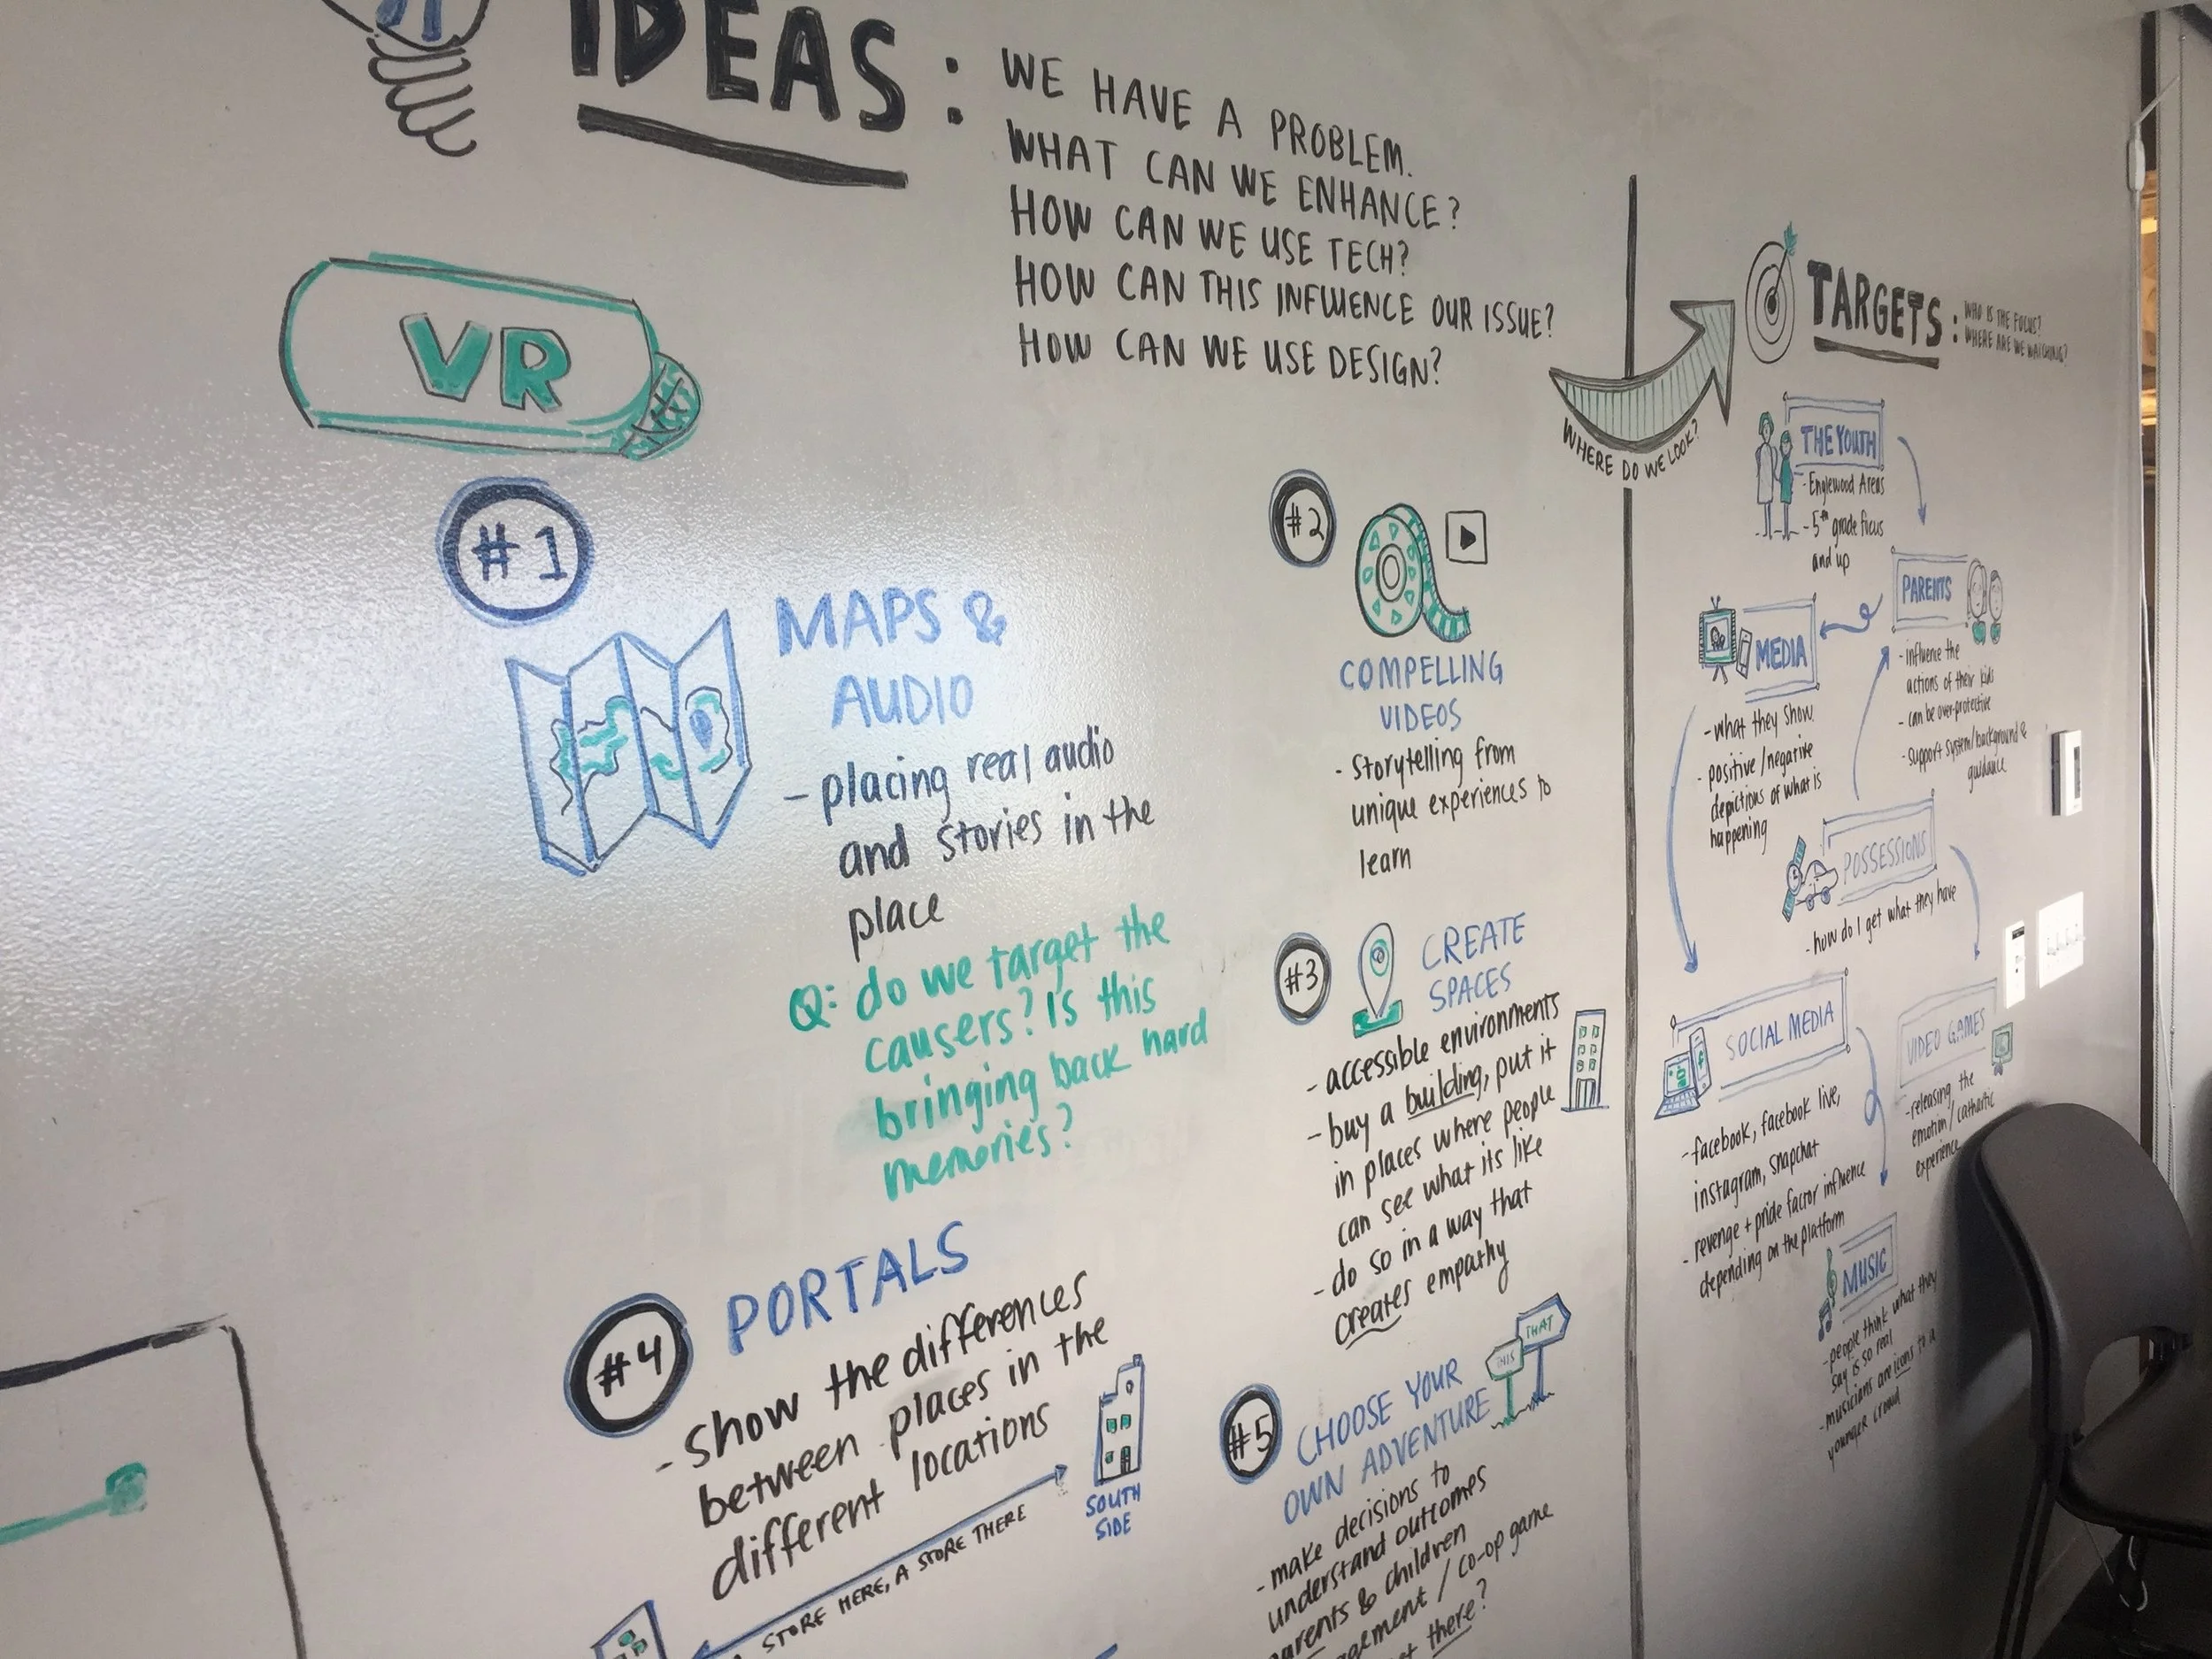 IDEAS:
WE HAVE A PROBLEM.
WHAT CAN WE ENHANCE?
HOW CAN WE USE TECH?
HOW CAN THIS INFLUENCE OUR ISSUE?
HOW CAN WE USE DESIGN?
VR
#1
MAPS &
AUDIO
- placing real audio
and stories in the
place
Q: do we target the
causers? Is this
bringing back hard
memories?
#2
COMPELLING
VIDEOS
- Storytelling from
unique experiences to
learn
#3
CREATE
SPACES
- accessible environments
- buy a building, put it
in places where people
can see what its like
- do so in a way that
creates empathy
#4
PORTALS
- Show the differences
between places in the
different locations
SOUTH
SIDE
STORE HERE, A STORE THERE
#5
CHOOSE YOUR
OWN ADVENTURE
THIS
THAT
- make decisions to
understand outcomes
parents & children
/ co-op game
there?
WHERE DO WE LOOK?
TARGETS:
WHO IS THE FOCUS?
WHERE ARE WE WATCHING?
THE YOUTH
- Englewood Areas
- 5th grade focus
and up
PARENTS
- influence the
actions of their kids
- can be over-protective
- support system/background &
guidance
MEDIA
- what they show
- positive/negative
depictions of what is
happening
POSSESSIONS
- how do I get what they have
SOCIAL MEDIA
- facebook, facebook live,
instagram, snapchat
- revenge + pride factor influence
depending on the platform
VIDEO GAMES
- releasing the
emotion/cathartic
experience
MUSIC
- people think what they
say is so real
- musicians are icons to a
younger crowd